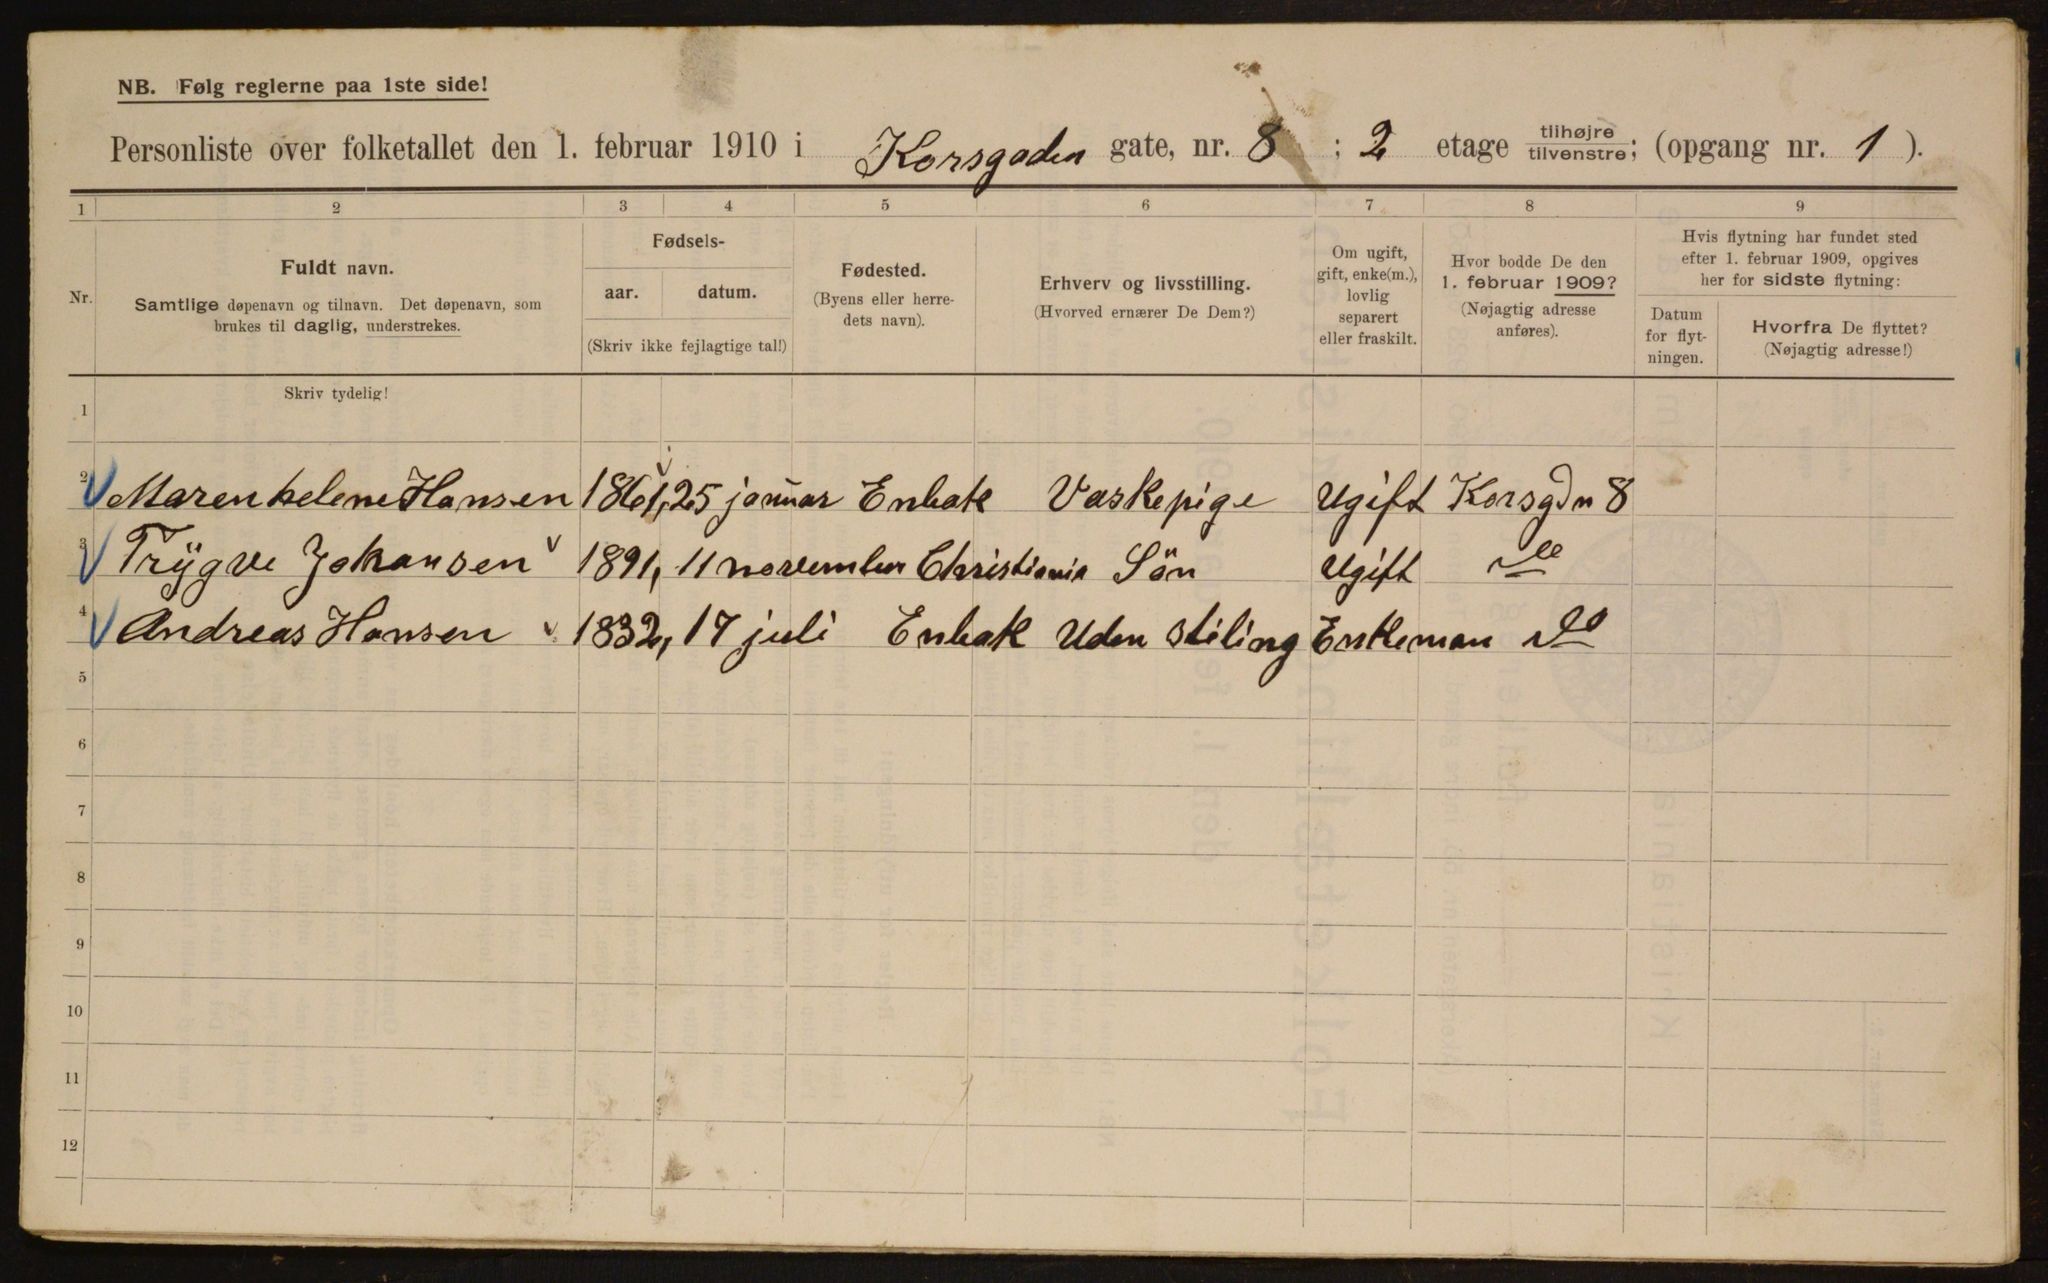 NB. Følg reglerne paa 1ste side!
Personliste over folketallet den 1. februar 1910 i Korsgaden gate, nr. 8 ; 2 etage tilhøjre tilvenstre; (opgang nr. 1 ).
1 2 3 4 5 6 7 8 9
Nr.
Fuldt navn.
Samtlige døpenavn og tilnavn. Det døpenavn, som
brukes til daglig, understrekes.
Fødsels-
aar. datum.
(Skriv ikke fejlagtige tal!)
Fødested.
(Byens eller herre-
dets navn).
Erhverv og livsstilling.
(Hvorved ernærer De Dem?)
Om ugift,
gift, enke(m.),
lovlig
separert
eller fraskilt.
Hvor bodde De den
1. februar 1909?
(Nøjagtig adresse
anføres).
Hvis flytning har fundet sted
efter 1. februar 1909, opgives
her for sidste flytning:
Datum
for flyt-
ningen.
Hvorfra De flyttet?
(Nøjagtig adresse!)
Skriv tydelig!
1
2 Maren helene Hansen 1861, 25 januar Enbak Vaskepige Ugift Korsgdn 8
3 Trÿgve Johansen 1891, 11 november Christiania Sön Ugift do
4 Andreas Hansen 1832, 17 juli Enbak Uden stiling Enkeman do
5
6
7
8
9
10
11
12